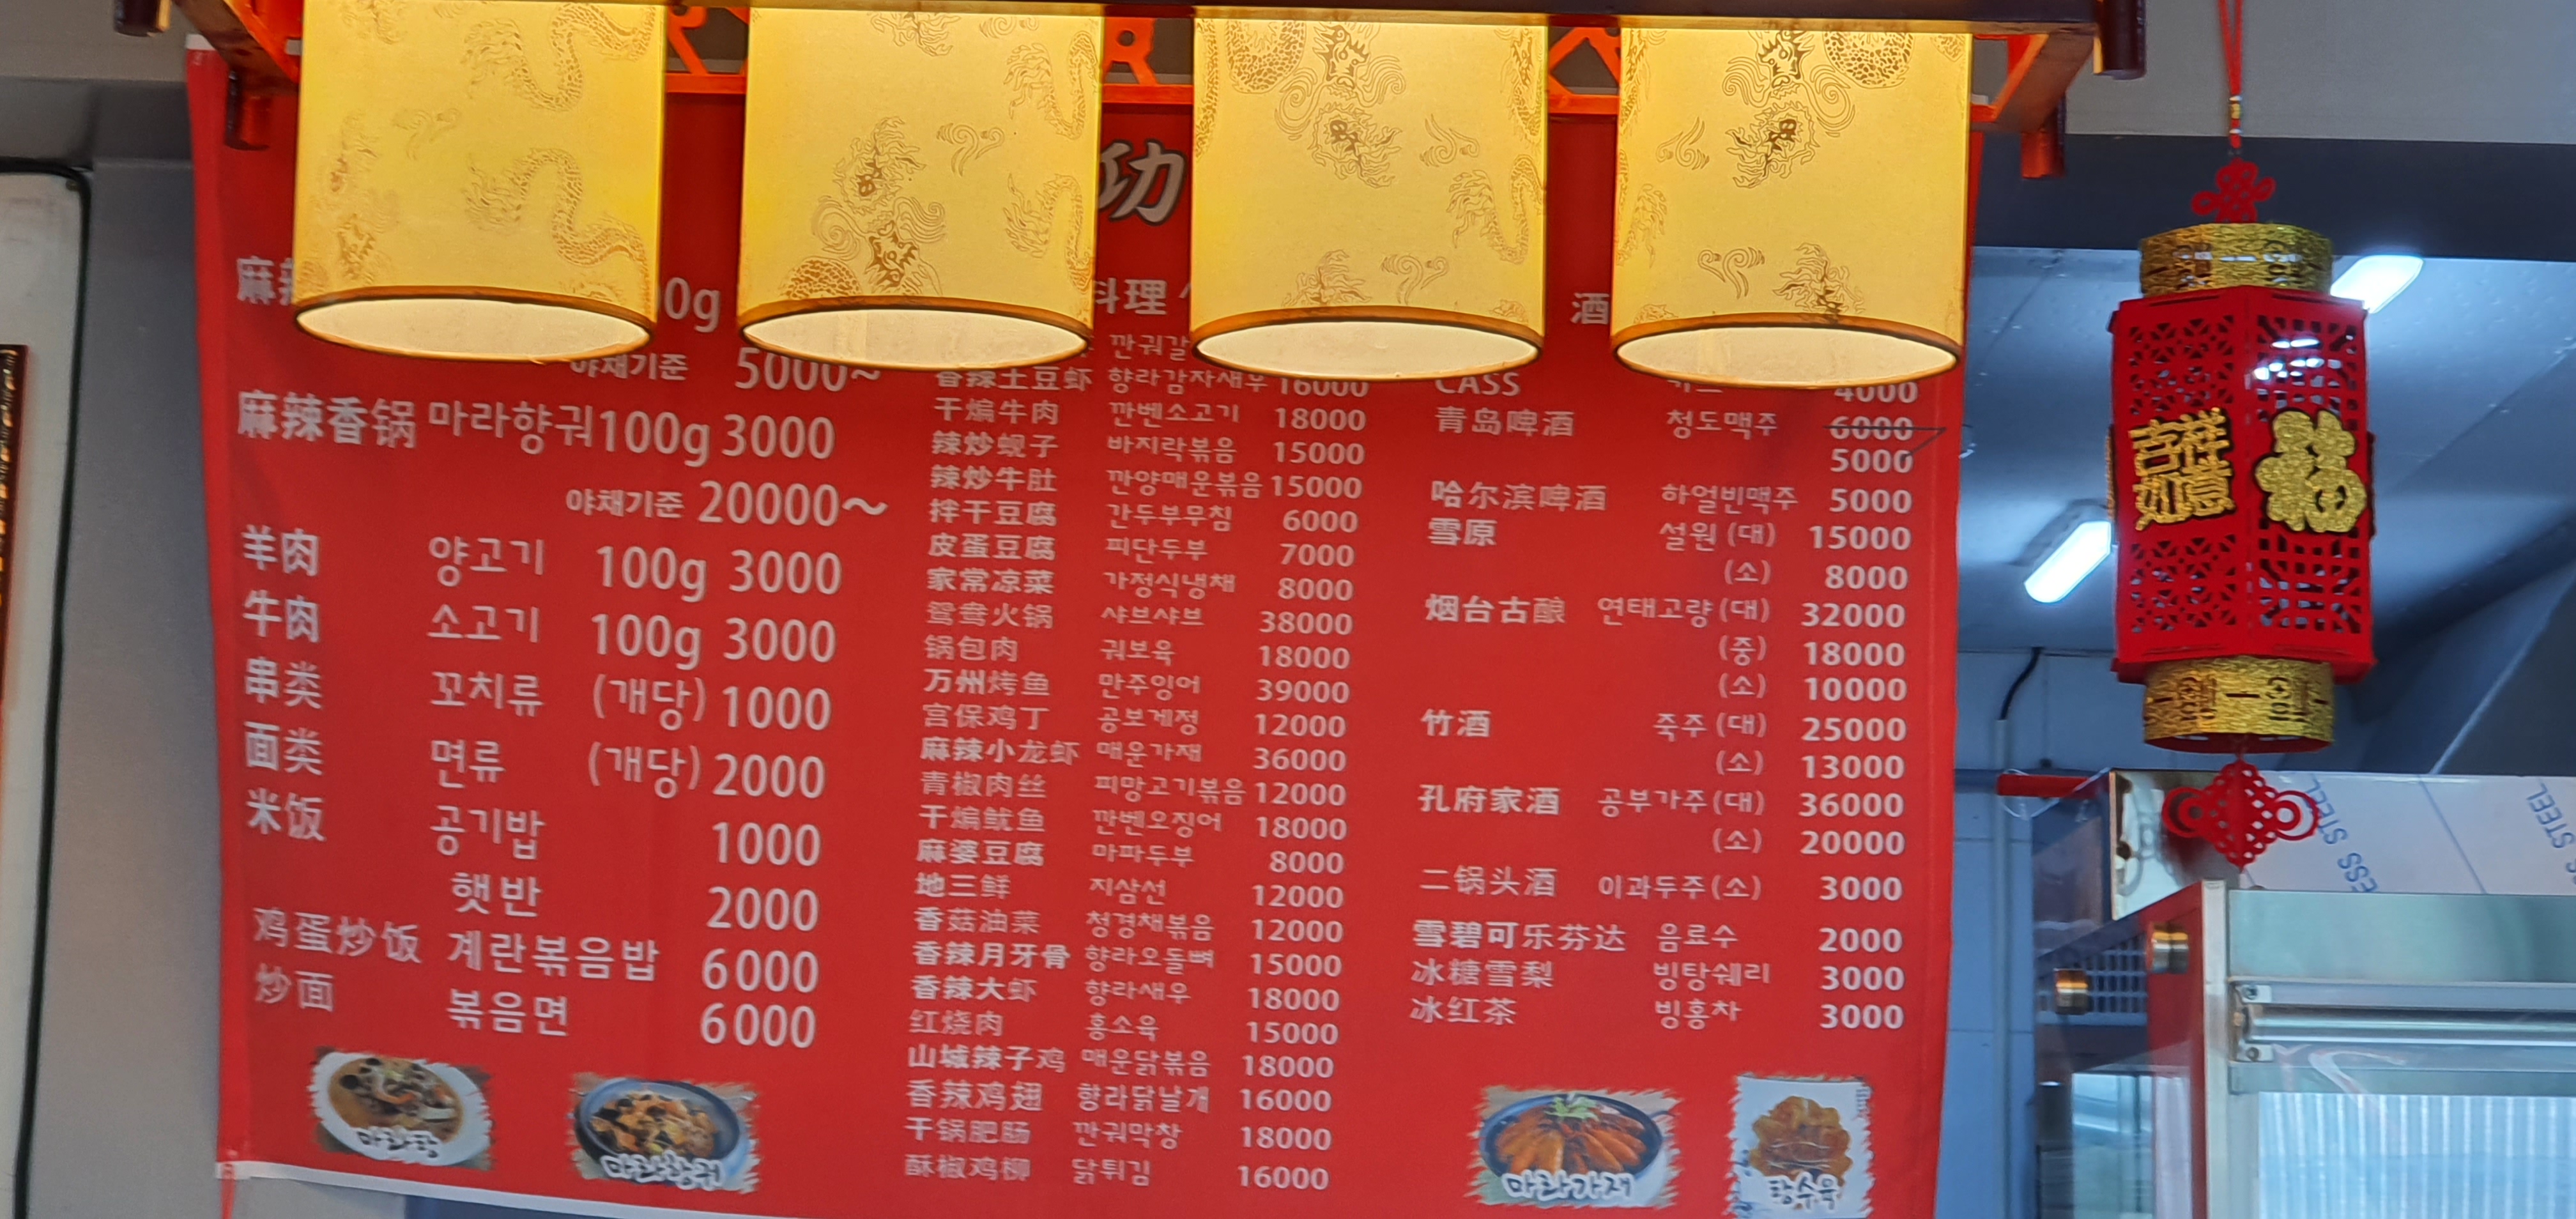 功
麻辣
00g
야채기준 5000~
麻辣香锅 마라향궈100g 3000
야채기준 20000~
羊肉 양고기 100g 3000
牛肉 소고기 100g 3000
串类 꼬치류 (개당) 1000
面类 면류 (개당) 2000
米饭 공기밥 1000
햇반 2000
鸡蛋炒饭 계란볶음밥 6000
炒面 볶음면 6000
마라탕
마라향궈
料理
깐궈갈
香辣土豆虾 향라감자새우 16000
干煸牛肉 깐벤소고기 18000
辣炒蚬子 바지락볶음 15000
辣炒牛肚 깐양매운볶음 15000
拌干豆腐 간두부무침 6000
皮蛋豆腐 피단두부 7000
家常凉菜 가정식냉채 8000
鸳鸯火锅 샤브샤브 38000
锅包肉 궈보육 18000
万州烤鱼 만주잉어 39000
宫保鸡丁 공보계정 12000
麻辣小龙虾 매운가재 36000
青椒肉丝 피망고기볶음 12000
干煸鱿鱼 깐벤오징어 18000
麻婆豆腐 마파두부 8000
地三鲜 지삼선 12000
香菇油菜 청경채볶음 12000
香辣月牙骨 향라오돌뼈 15000
香辣大虾 향라새우 18000
红烧肉 홍소육 15000
山城辣子鸡 매운닭볶음 18000
香辣鸡翅 향라닭날개 16000
干锅肥肠 깐궈막창 18000
酥椒鸡柳 닭튀김 16000
酒
CASS 4000
青岛啤酒 청도맥주 6000
5000
哈尔滨啤酒 하얼빈맥주 5000
雪原 설원 (대) 15000
(소) 8000
烟台古酿 연태고량 (대) 32000
(중) 18000
(소) 10000
竹酒 죽주 (대) 25000
(소) 13000
孔府家酒 공부가주 (대) 36000
(소) 20000
二锅头酒 이과두주 (소) 3000
雪碧可乐芬达 음료수 2000
冰糖雪梨 빙탕쉐리 3000
冰红茶 빙홍차 3000
마라가재
탕수육
吉祥
如意
福
STEEL
ESS STEEL